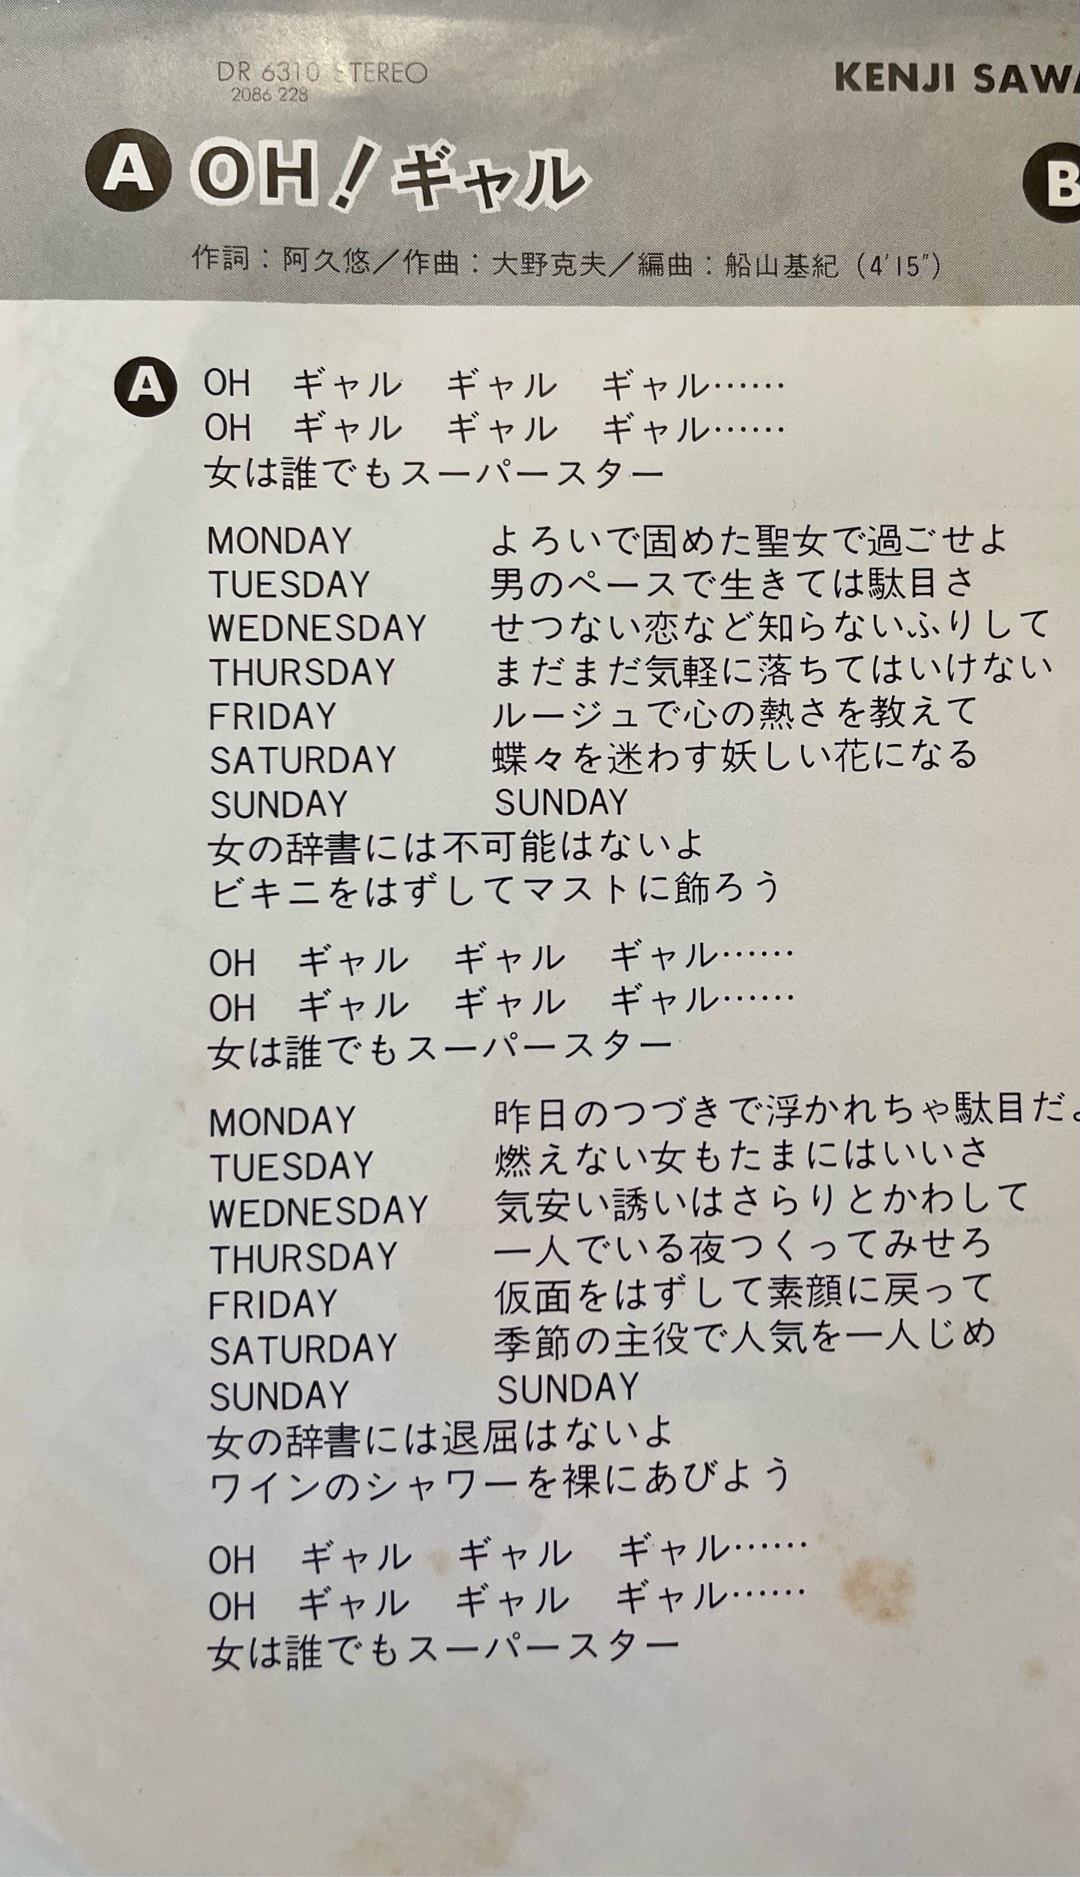 DR 6310 STEREO
2086 228
KENJI
A OH!ギャル
B
作詞:阿久悠/作曲:大野克夫/編曲:船山基紀(4'15")
A OH ギャル ギャル ギャル……
OH ギャル ギャル ギャル……
女は誰でもスーパースター
MONDAY よろいで固めた聖女で過ごせよ
TUESDAY 男のペースで生きては駄目さ
WEDNESDAY せつない恋など知らないふりして
THURSDAY まだまだ気軽に落ちてはいけない
FRIDAY ルージュで心の熱さを教えて
SATURDAY 蝶々を迷わす妖しい花になる
SUNDAY SUNDAY
女の辞書には不可能はないよ
ビキニをはずしてマストに飾ろう
OH ギャル ギャル ギャル……
OH ギャル ギャル ギャル……
女は誰でもスーパースター
MONDAY 昨日のつづきで浮かれちゃ駄目だよ
TUESDAY 燃えない女もたまにはいいさ
WEDNESDAY 気安い誘いはさらりとかわして
THURSDAY 一人でいる夜つくってみせろ
FRIDAY 仮面をはずして素顔に戻って
SATURDAY 季節の主役で人気を一人じめ
SUNDAY SUNDAY
女の辞書には退屈はないよ
ワインのシャワーを裸にあびよう
OH ギャル ギャル ギャル……
OH ギャル ギャル ギャル……
女は誰でもスーパースター